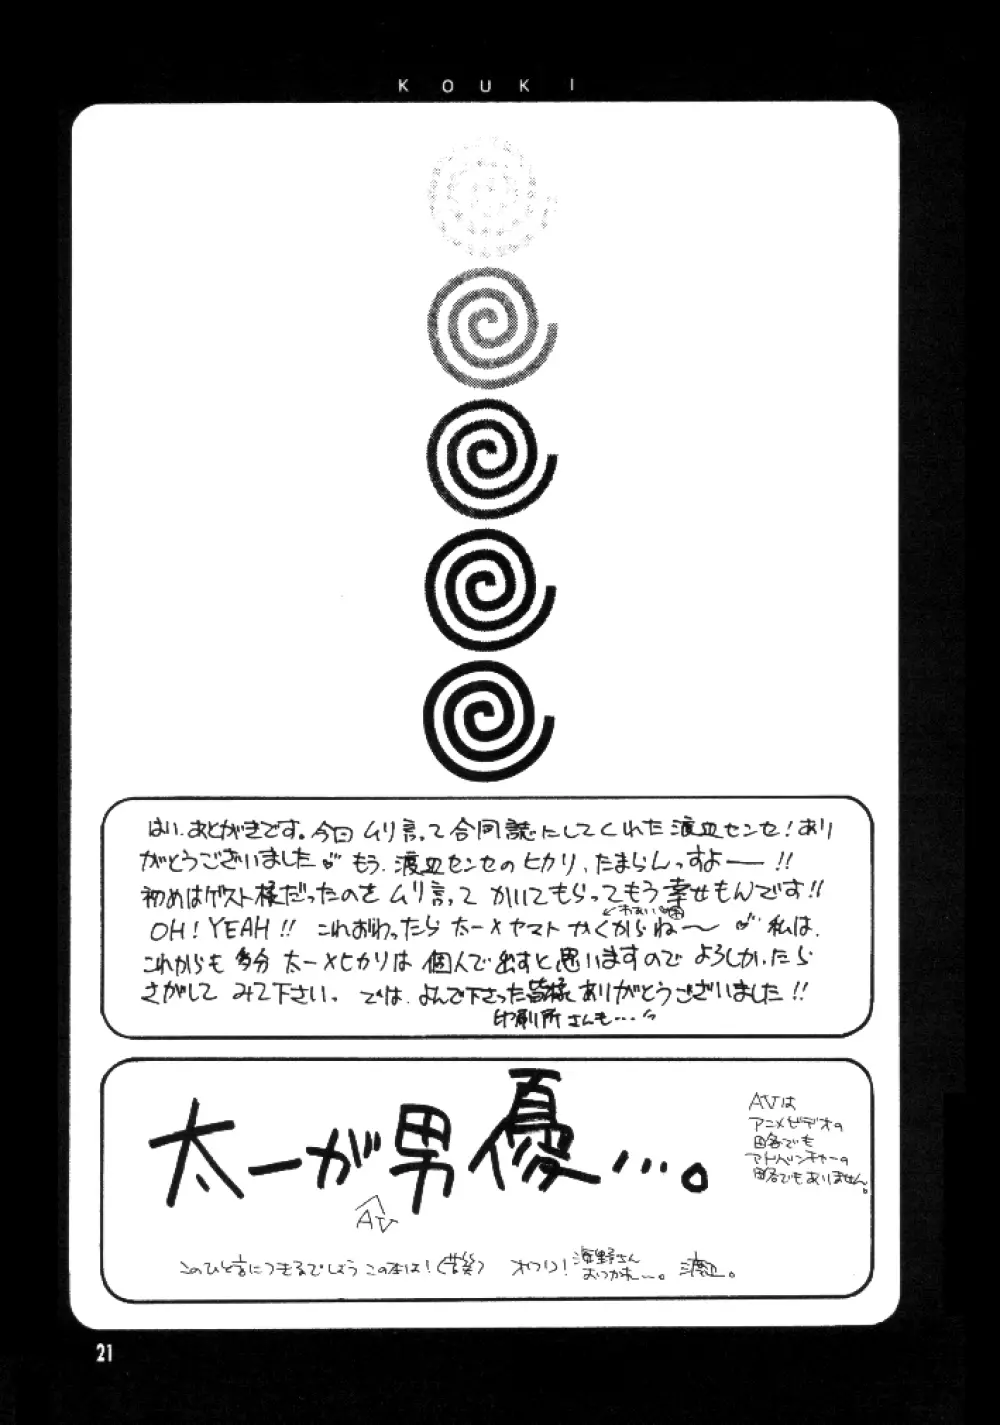 KOUKI
はい、あとがきです。今回ムリ言って合同誌にしてくれた渡辺センセ!あり
がとうございました もう、渡辺センセのヒカリ、たまらんっすよー!!
初めはゲスト様だったのをムリ言ってかいてもらってもう幸せもんです!!
OH! YEAH!! これおわったら太一×ヤマトかくからね〜 私は、
これからも多分太一×ヒカリは個人で出すと思いますのでよろしかったら
さがしてみて下さい。では、よんで下さった皆様ありがとうございました!!
印刷所さんも…
太一が男優…。
AV
AVは
アニメビデオの
略でも
アドベンチャーの
略でもありません。
このひと言につきるでしょうこの本は!(苦笑)
おわり!
海野さん
おつかれ…。
21